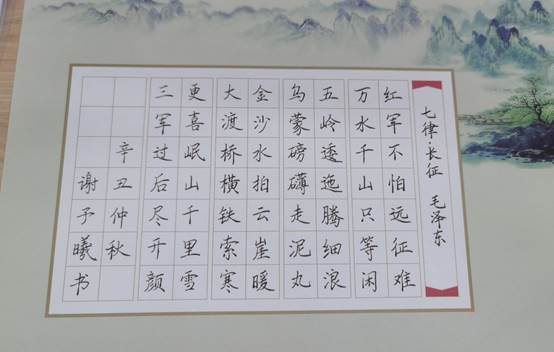 七律·长征 毛泽东
红军不怕远征难
万水千山只等闲
五岭逶迤腾细浪
乌蒙磅礴走泥丸
金沙水拍云崖暖
大渡桥横铁索寒
更喜岷山千里雪
三军过后尽开颜
辛丑仲秋
谢予曦书